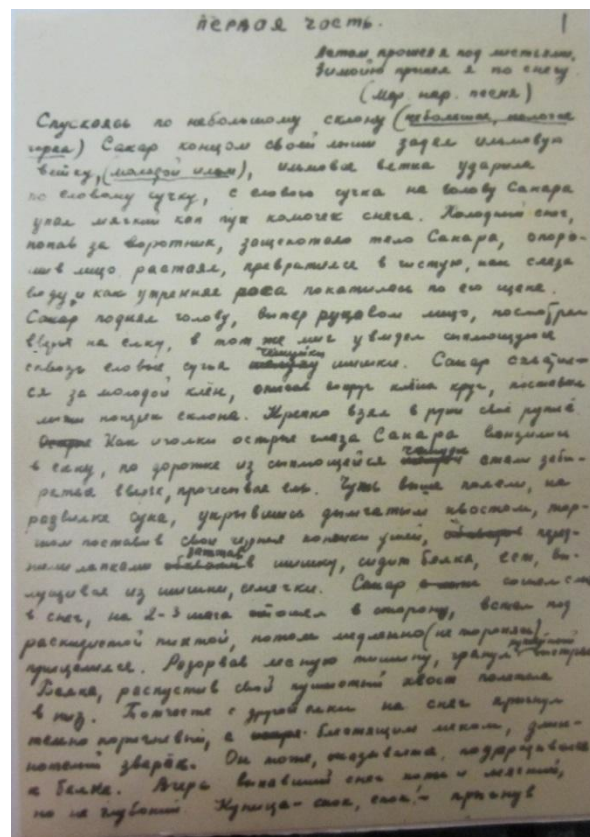 первая часть. 1
Летом прошел я под листьями,
Зимою прошел я по снегу
(Мар. нар. песня)
Спускаясь по небольшому склону (небольшая, пологая
горка) Сакар концом своей лыжи задел ильмовую
ветку, (молодой ильм), ильмовая ветка ударила
по еловому сучку, с елового сучка на голову Сакара
упал мягкий как пух комочек снега. Холодный снег,
попав за воротник, защекотало тело Сакара,
лицо растаял, превратился в чистую, как слеза
воду, и как утренняя роса покатилось по его щеке.
Сакар поднял голову, вытер рукавом лицо, посмотрел
вверх на елку, в тот же миг увидел сыплющуюся
сквозь еловые сучья чешуйки шишки. Сакар
ся за молодой клён, описав вокруг клёна круг, поставил
лыжи поперек склона. Крепко взял в руки своё ружьё.
Как иголки острые глаза Сакара вонзились
в елку, по дорожке из сыплющейся чешуи стали взби-
раться вверх, прочесывая ель. Чуть выше полели, на
развилке сука, укрывшись дымчатым хвостом, тор-
чком поставив свои черные кончики ушей, перед-
ними лапками шишку, сидит белка, ест, вы-
лущивая из шишки, семечки. Сакар сошел
в снег, на 2-3 шага отошел в сторону, встал под
раскидистой пихтой, потом медленно (не торопясь)
прицелился. Разорвав лесную тишину, грянул выстрел
Белка, распустив свой пушистый хвост полетела
в низ. Вместе с другой елки на снег прыгнул
темно коричневый, с блестящим мехом,
зверёк. Он тоже, оказывается, подкрадывался
к белке. Вчера выпавший снег мягкий,
но не глубокий. Куница - скок, скок! - прыгнув